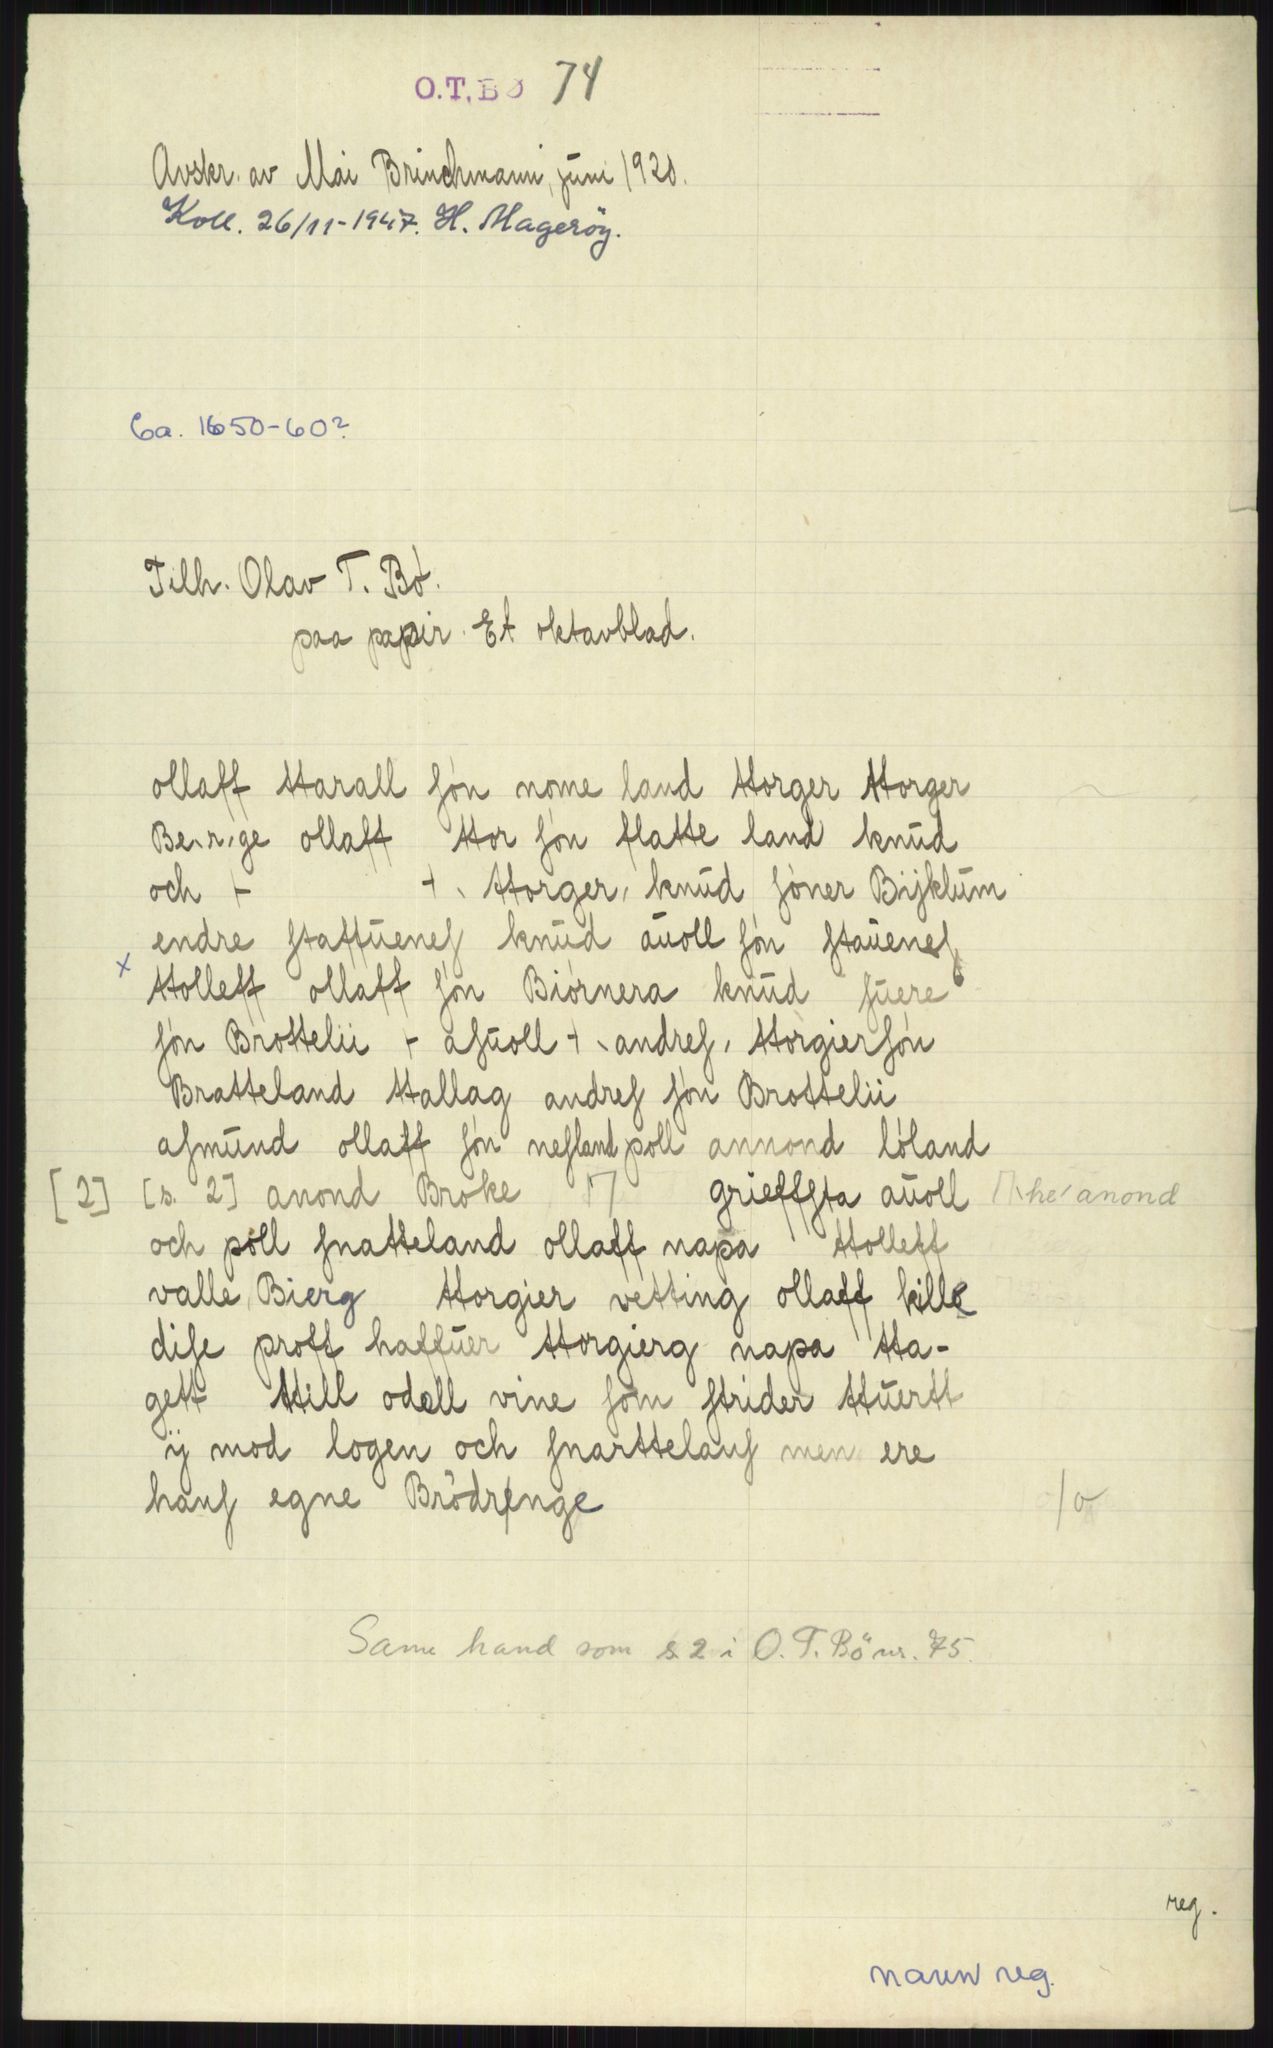 O.T. BØ 74
Avskr. av Mai Brinchmann, juni 1920.
Koll. 26/11-1947. H. Magerøy.
Ca. 1650-60?
Tilh. Olav T. Bø.
paa papir. Et oktavblad.
ollaff ttarall søn nome land ttorger ttorger
Be r ge ollaff ttor søn flatte land knud
och + + ttorger knud søner Bijklum
endre staffuenes knud auoll søn stauenes
x ttolleff ollaff søn Biørnera knud suere
søn Brottelii + asuoll + andres ttorgiersøn
Bratteland ttallag andres søn Brottelii
asmund ollaff søn nesland poll annond løland
[2] [s. 2] anond Broke grieffsta auoll he anond
och poll snatteland ollaff napa ttolleff
valle Bierg ttorgier vetting ollaff kille
dise proff haffuer ttorgierg napa tta-
gett ttill odell vine som strider ttuertt
ij mod logen och snarttelaus men ere
hans egne Brödrenge
o/o
Same hand som s 2 i O. T. Bö nr. 75.
reg.
navn reg.